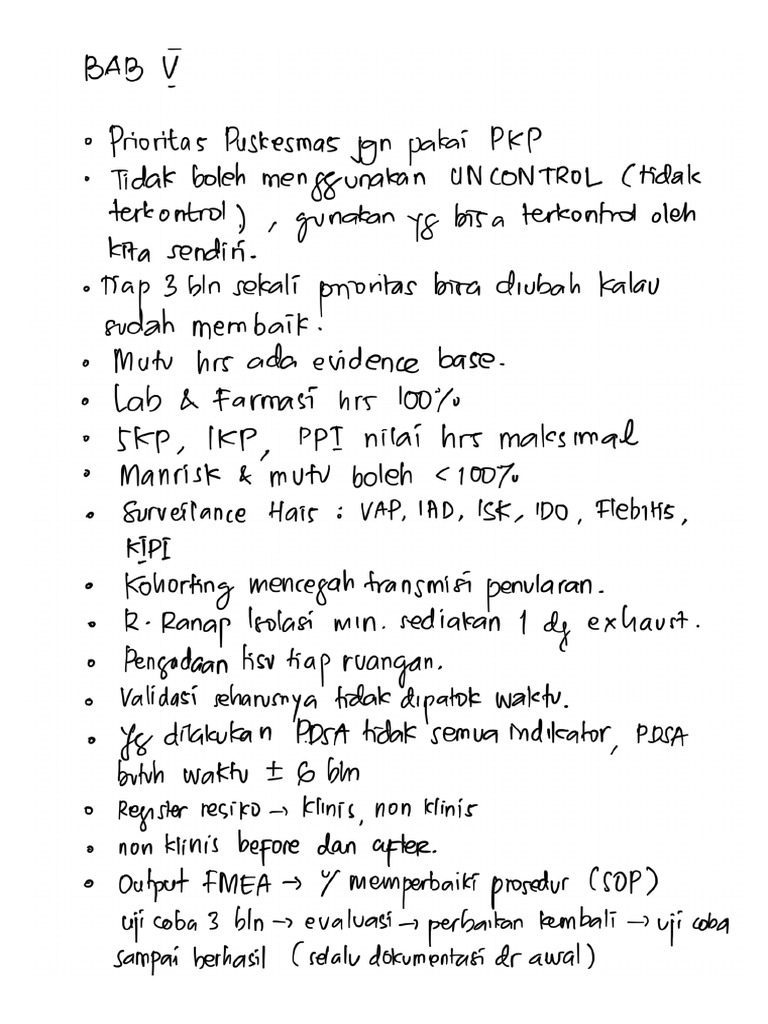 BAB V
• Prioritas Puskesmas jgn pakai PKP
• Tidak boleh menggunakan UNCONTROL (tidak
terkontrol), gunakan yg bisa terkontrol oleh
kita sendiri.
• Tiap 3 bln sekali prioritas bisa diubah kalau
sudah membaik.
• Mutu hrs ada evidence base.
• Lab & Farmasi hrs 100%
• SKP, IKP, PPI nilai hrs maksimal
• Manrisk & mutu boleh <100%
• Surveilance Hais : VAP, IAD, ISK, IDO, Flebitis,
KIPI
• Kohorting mencegah transmisi penularan.
• R. Ranap Isolasi min. sediakan 1 dg exhaust.
• Pengadaan tisu tiap ruangan.
• Validasi seharusnya tidak dipatok waktu.
• Yg dilakukan PDSA tidak semua indikator, PDSA
butuh waktu ± 6 bln
• Register resiko → klinis, non klinis
• non klinis before dan after.
• Output FMEA → y/ memperbaiki prosedur (SOP)
uji coba 3 bln → evaluasi → perbaikan kembali → uji coba
sampai berhasil (selalu dokumentasi dr awal)